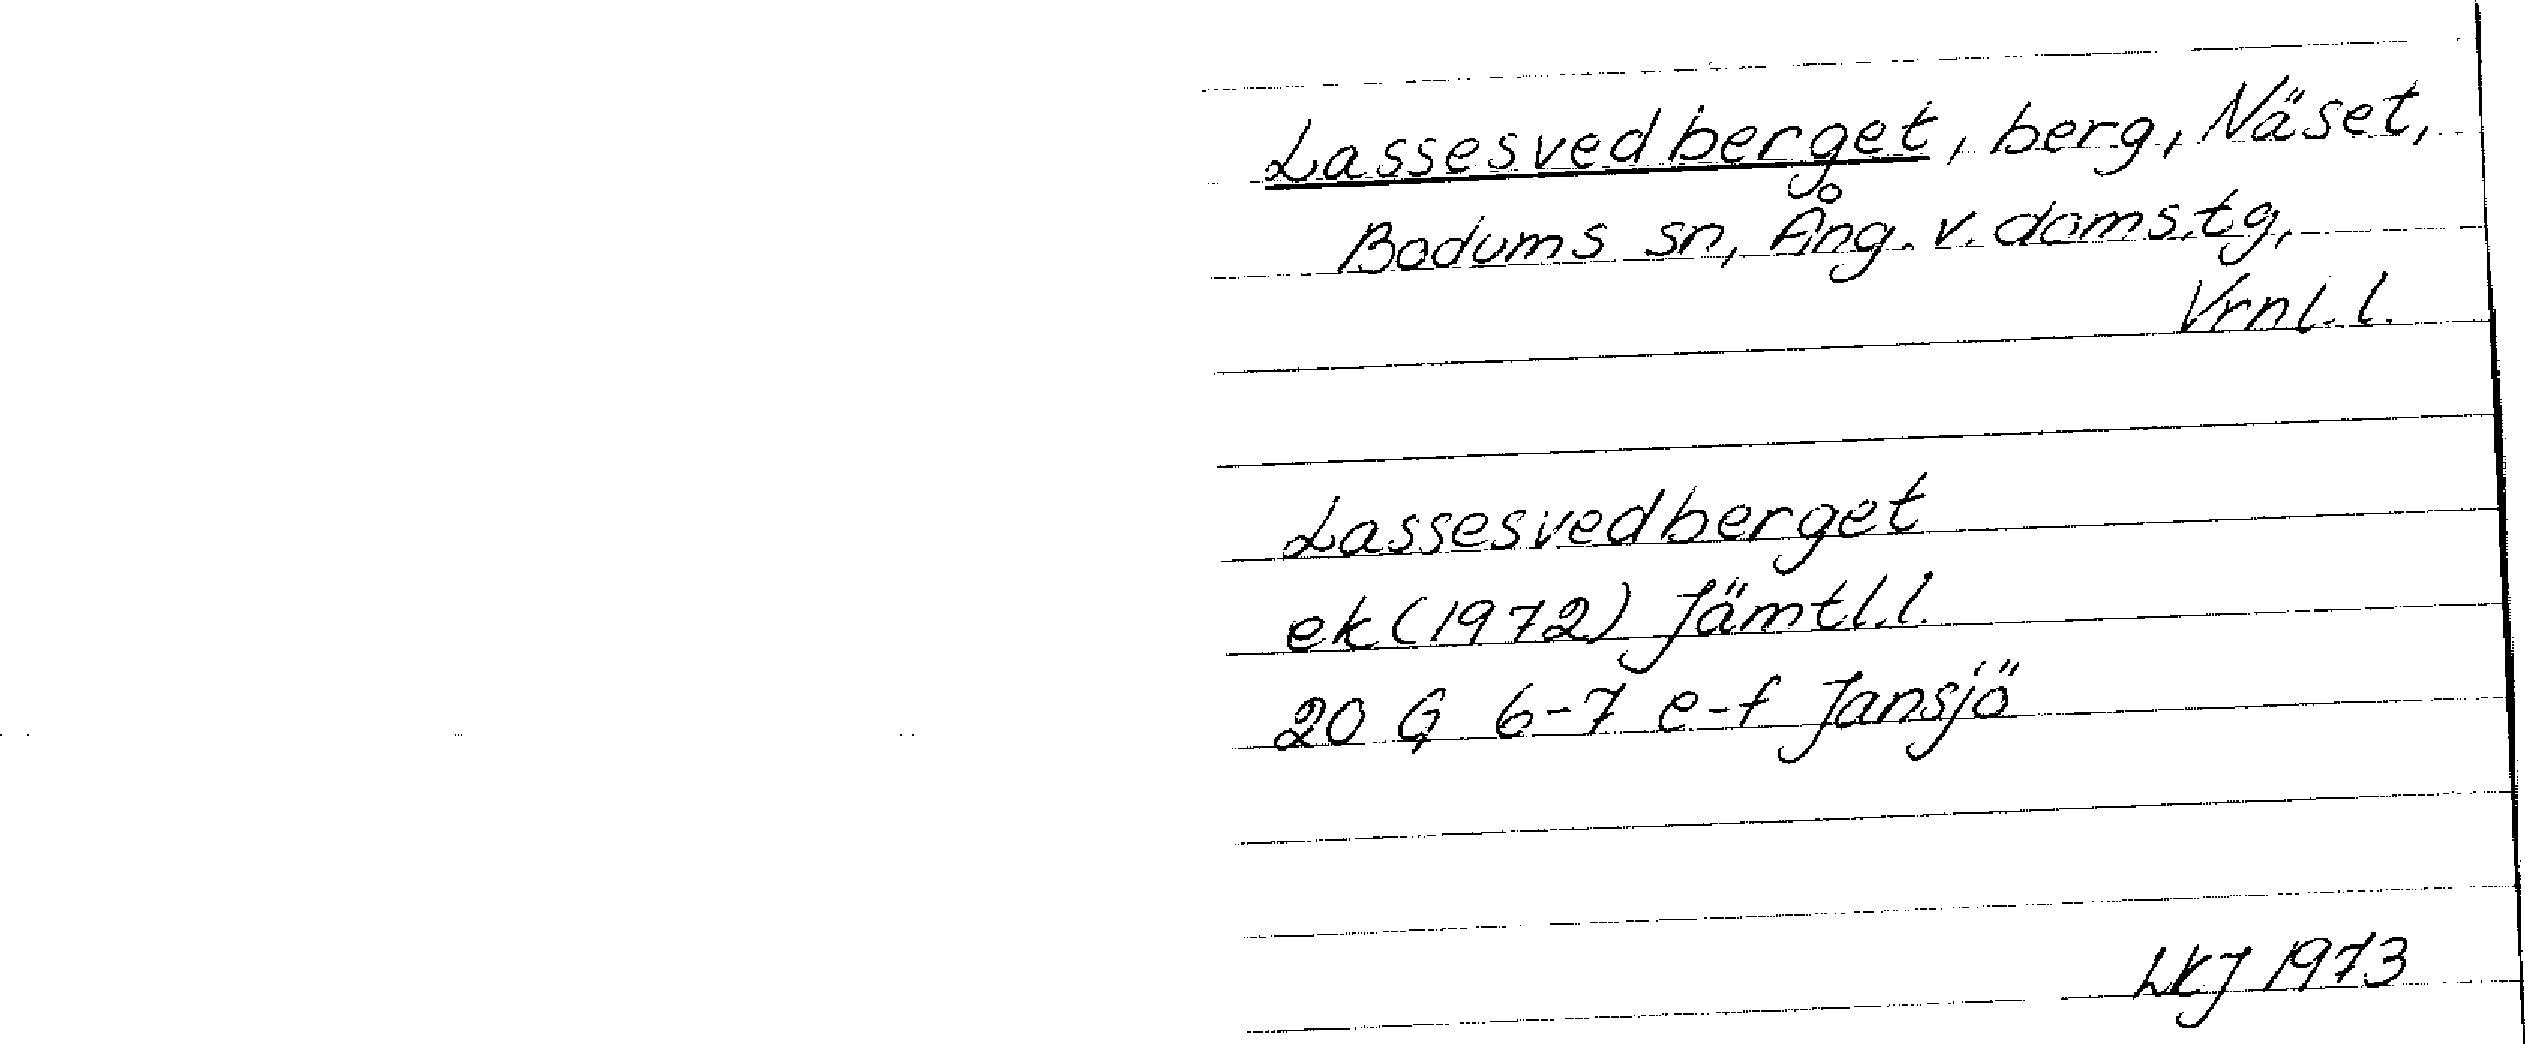 Lassesvedberget, berg, Näset,
Bodums sn, Ång. v. doms.tg,
Vrnl.l.
Lassesvedberget
ek (1972) Jämtl.l.
20 G 6-7 e-f Jansjö
LKJ 1973